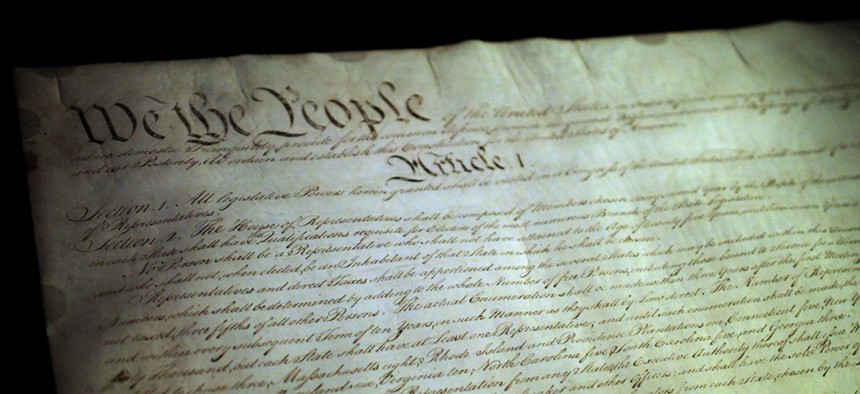 We the People of the United States, in Order
insure domestic Tranquility, provide for the common defence,
and our Posterity, do ordain and establish this Constitution for the United States of America.
Article I.
Section. 1. All legislative Powers herein granted shall be vested in a Congress of the United States, which shall consist of a
of Representatives.
Section. 2. The House of Representatives shall be composed of Members chosen every second Year by the People of the several
in each State shall have the Qualifications requisite for Electors of the most numerous Branch of the State Legislature.
No Person shall be a Representative who shall not have attained to the Age of twenty five Years, and been seven Years a
and who shall not, when elected, be an Inhabitant of that State in which he shall be chosen.
Representatives and direct Taxes shall be apportioned among the several States which may be included within this Union,
Numbers, which shall be determined by adding to the whole Number of free Persons, including those bound to Service for a Term
not taxed, three fifths of all other Persons. The actual Enumeration shall be made within three Years after the first Meeting
and within every subsequent Term of ten Years, in such Manner as they shall by Law direct. The Number of Representatives
thirty Thousand, but each State shall have at Least one Representative; and until such enumeration shall be made, the
entitled to chuse three, Massachusetts eight, Rhode Island and Providence Plantations one, Connecticut five, New
Maryland six, Virginia ten, North Carolina five, South Carolina five, and Georgia three.
Representation from any State, the Executive Authority thereof shall issue
Speaker and other Officers; and shall have the sole Power of
Senators from each State, chosen by the